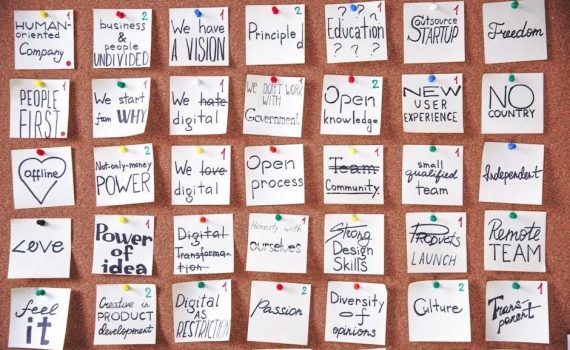 HUMAN-
oriented
Company
2
business
& people
UNDIVIDED
1
We have
A VISION
Principled
2
Education
? ? ? ?
? ?
1
outsource
STARTUP
Freedom
PEOPLE
FIRST.
1
We start
from WHY
We hate
digital
1
We DON'T WORK
WITH
Government
2
Open
knowledge
1
NEW
USER
EXPERIENCE
NO
COUNTRY
offline
2
Not-only-money
POWER
1
We love
digital
1
Open
process
1
Team
Community
1
small
qualified
team
Independent
Love
2
Power
of
idea
Digital
Transforma-
tion
1
Honesty with
ourselves
Strong
Design
Skills
1
Products
LAUNCH
Remote
TEAM
feel
it
2
Creative in
PRODUCT
development
1
Digital
AS
RESTRICTION
2
Passion
1
Diversity
of
opinions
2
Culture
1
Trans
parent